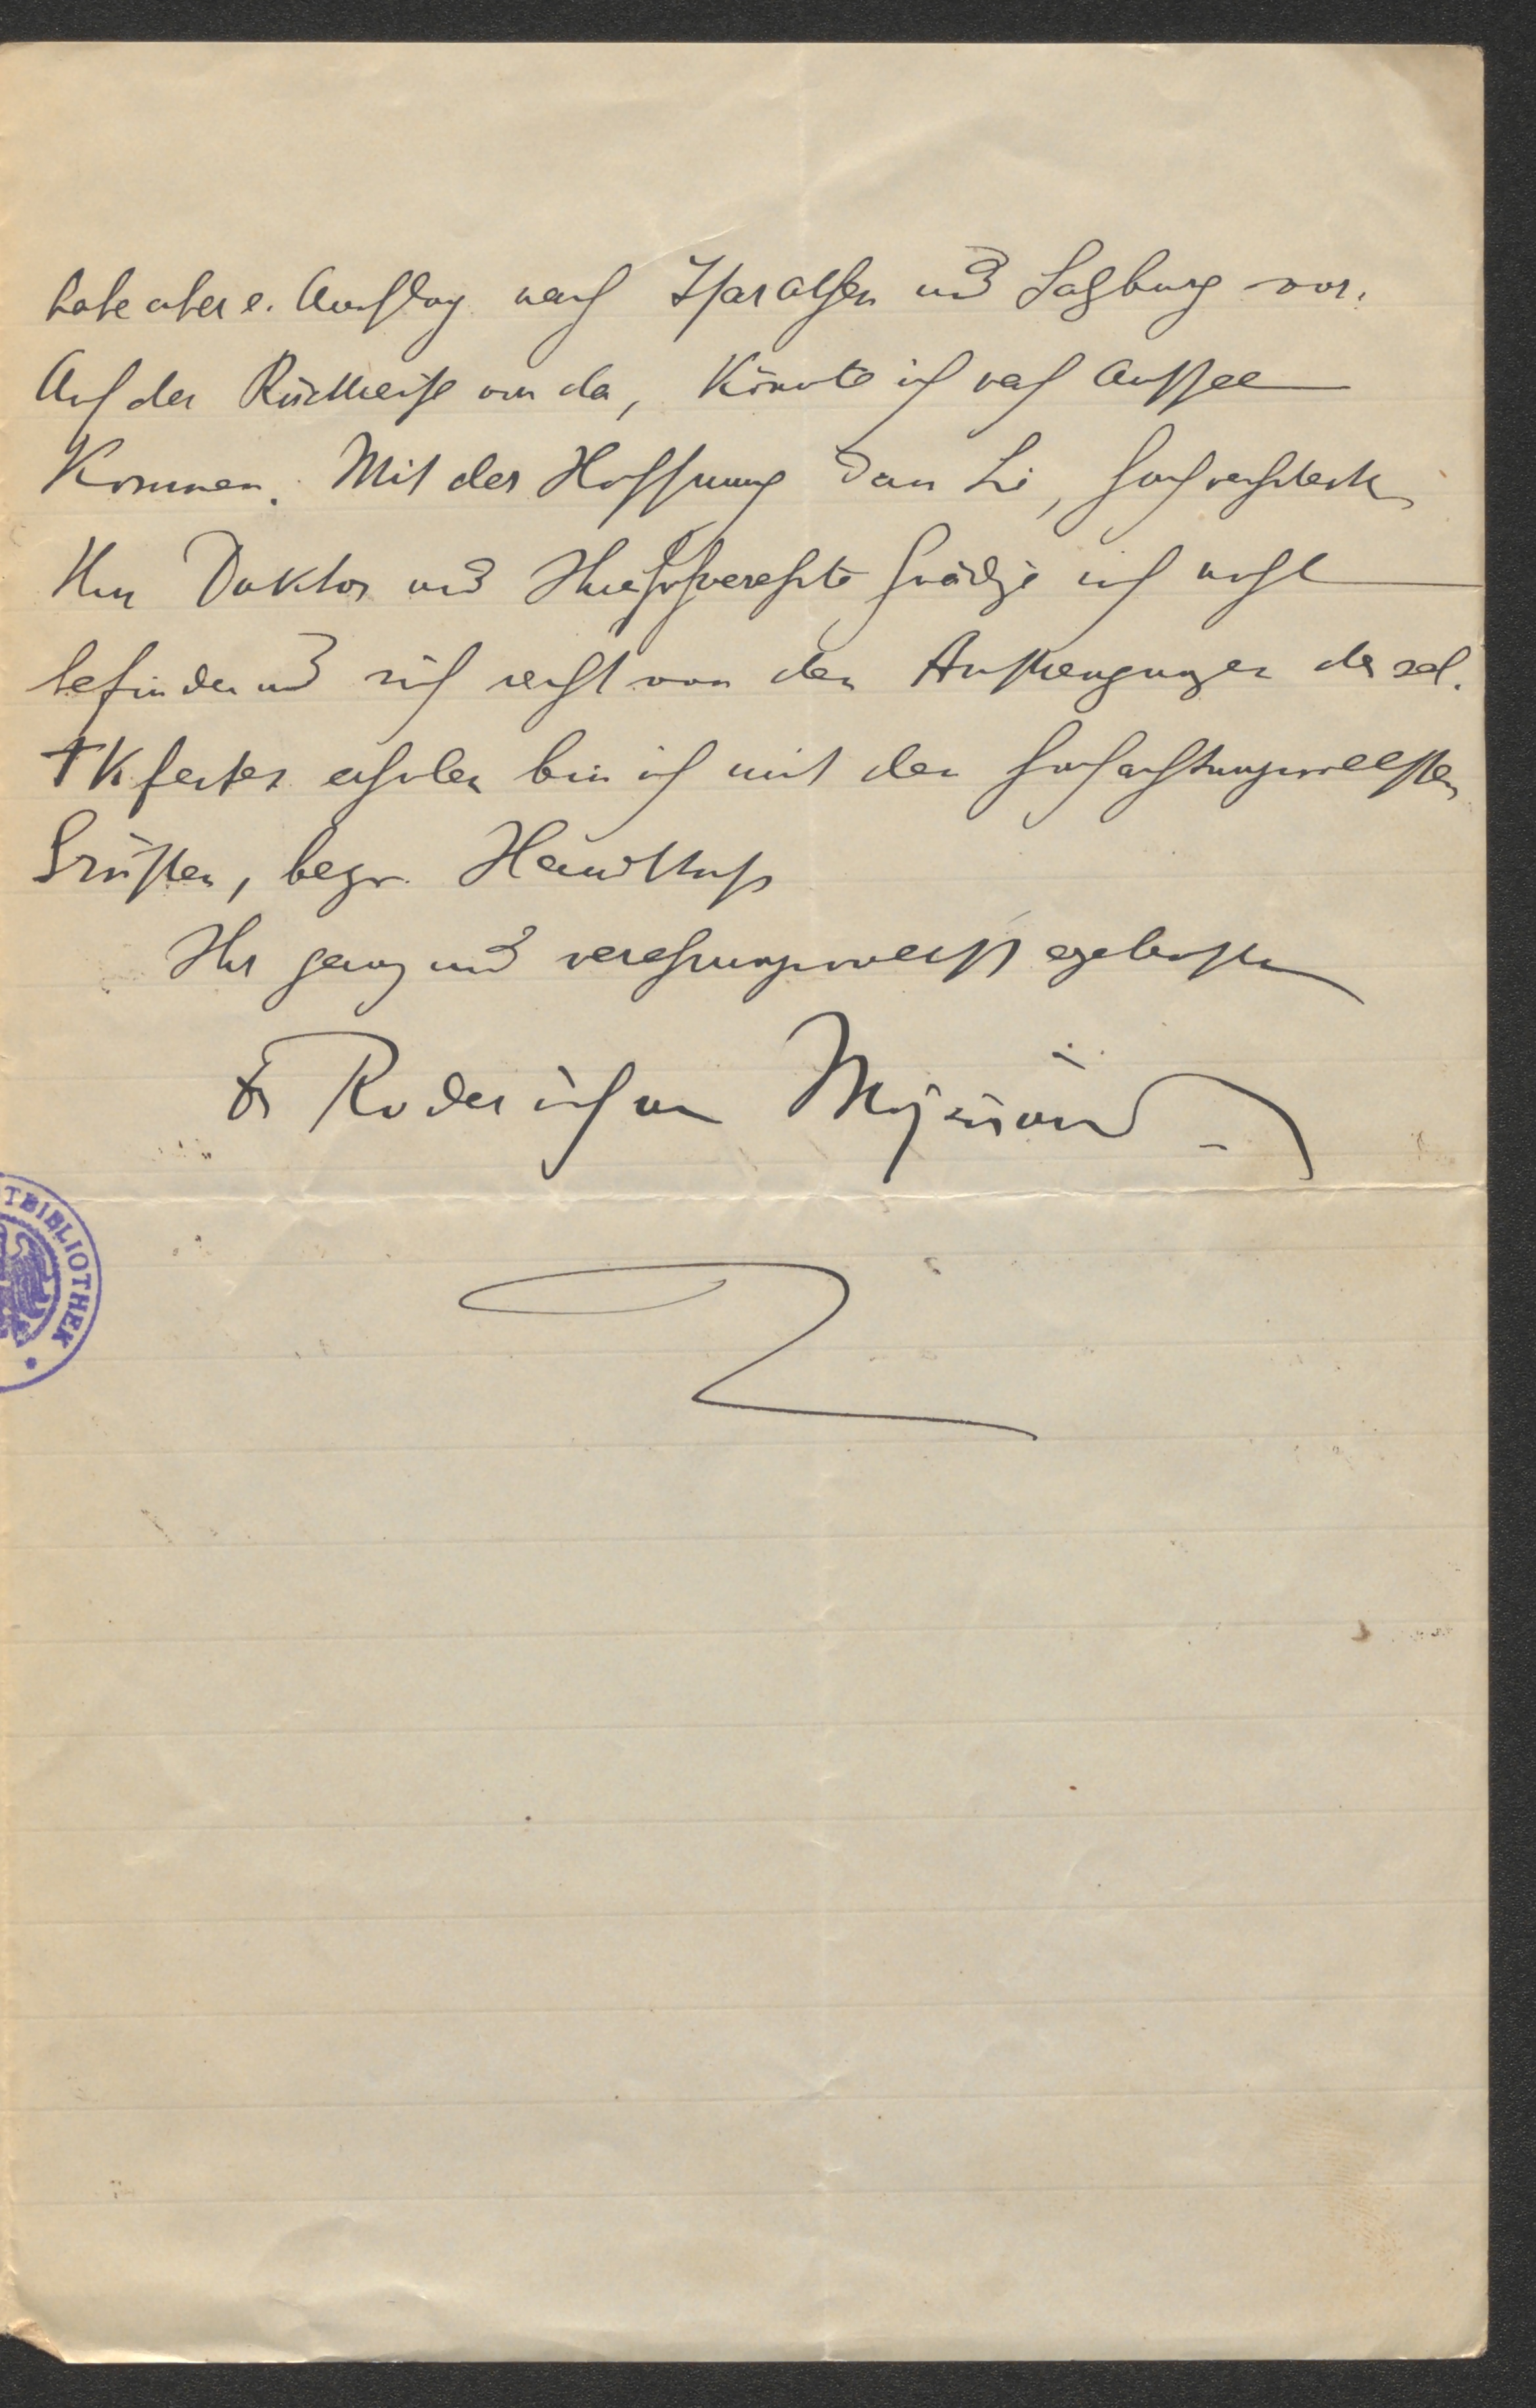 habe aber e. Ausflug nach Isaralpen und Salzburg vor.
Auf der Rückreise von da, könnte ich nach Aussee
kommen. Mit der Hoffnung dass Sie, hochverehrter
Herr Doktor und Ihre hochverehrte Gnädige sich wohl
befinden und sich recht von den Anstrengungen der sel.
erholen bin ich mit den hochachtungsvollsten
Grüssen, bezw. Handkuss
Ihr ganz und verehrungsvollst ergebenster
Dr Roderich von Mojsisovics
TBIBLIOTHEK